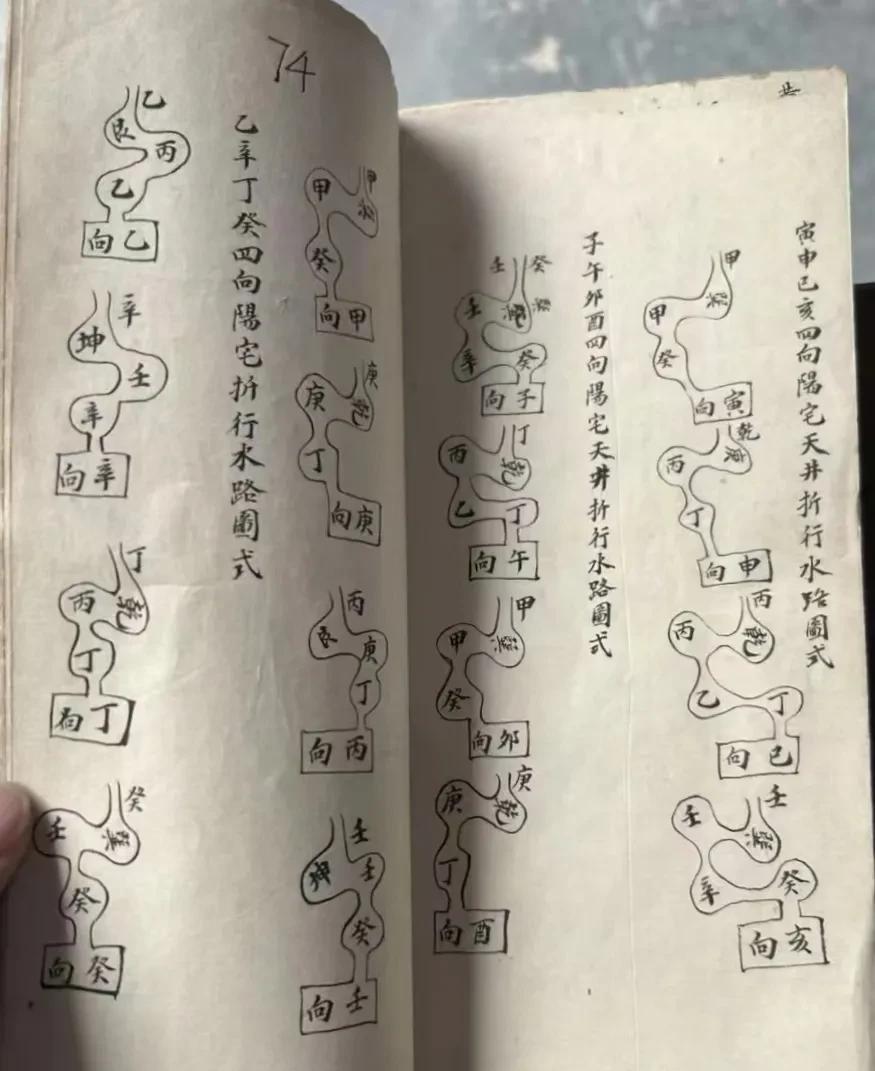 寅申巳亥四向陽宅天井折行水路圖式
甲
巽
甲
癸
向寅
乾
庚
丙
丁
向申
丙
乾
丙
乙
丁
向巳
壬
巽
壬
辛
癸
向亥
子午卯酉四向陽宅天井折行水路圖式
壬
癸
壬
辛
癸
向子
丁
乾
丙
乙
丁
向午
甲
巽
甲
癸
向卯
庚
乾
庚
丁
向酉
74
甲
甲
癸
向甲
庚
乾
庚
丁
向庚
丙
艮
庚
丁
向丙
壬
坤
壬
癸
向壬
乙辛丁癸四向陽宅折行水路圖式
乙
艮
丙
乙
向乙
辛
坤
壬
辛
向辛
丁
乾
丙
丁
向丁
癸
巽
壬
癸
向癸